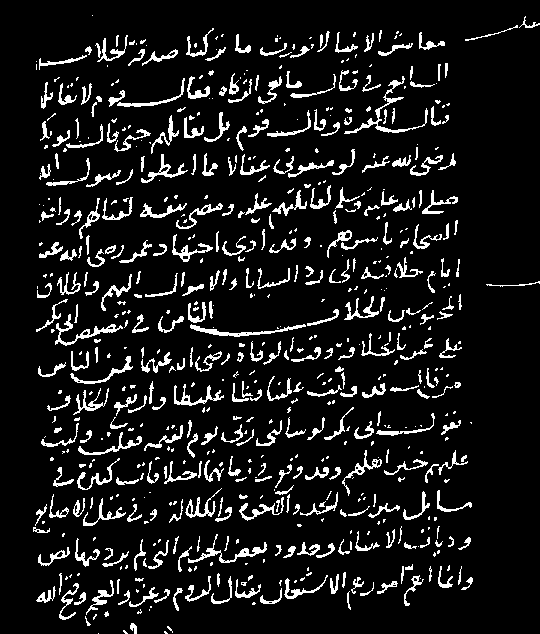 معاشر الانبيا لا نورث ما تركنا صدقة الخلاف
السابع في قتال مانعي الزكاه فقال قوم لا نقاتلهم
قتال الكفرة وقال قوم بل نقاتلهم حتى قال ابو بكر
رضي الله عنه لو منعوني عقالا مما اعطوا رسول الله
صلى الله عليه وسلم لقاتلتهم عليه ومضى بنفسه لقتالهم ووافقه
الصحابة باسرهم وقد ادي اجتهاد عمر رضي الله عنه
ايام خلافته الى رد السبايا والاموال اليهم واطلاق
المحبوسين الخلاف الثامن في تنصيص ابي بكر
على عمر بالخلافة وقت الوفاة رضي الله عنهما فمن الناس
من قال قد وليت علينا فظا غليظا وارتفع الخلاف
بقول ابي بكر لو سألني ربي يوم القيمه فقلت وليت
عليهم خير اهلهم وقد وقع في زمانهما اختلافات كثيرة في
مسايل ميراث الجد والاخوة والكلالة وفي عقل الاصابع
وديات الاسنان وحدود بعض الجرايم التي لم يرد فيها نص
وانما اهم امورهم الاشتغال بقتال الروم وغزو العجم وفتح الله